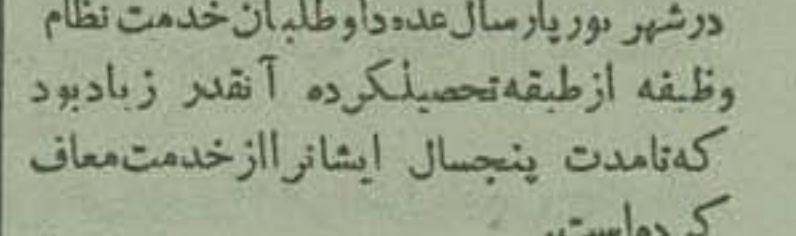 درشهر یور پارسال عده‌داوطلبان خدمت نظام
وظیفه از طبقه تحصیلکرده آنقدر زیادبود
که تا مدت پنجسال ایشانرا از خدمت معاف
کرده‌است